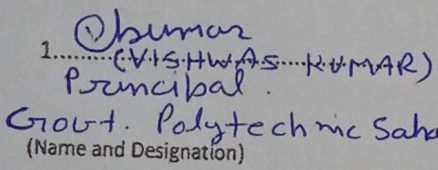 1.........(VISHWAS KUMAR)
Principal.
Govt. Polytechnic Saha
(Name and Designation)